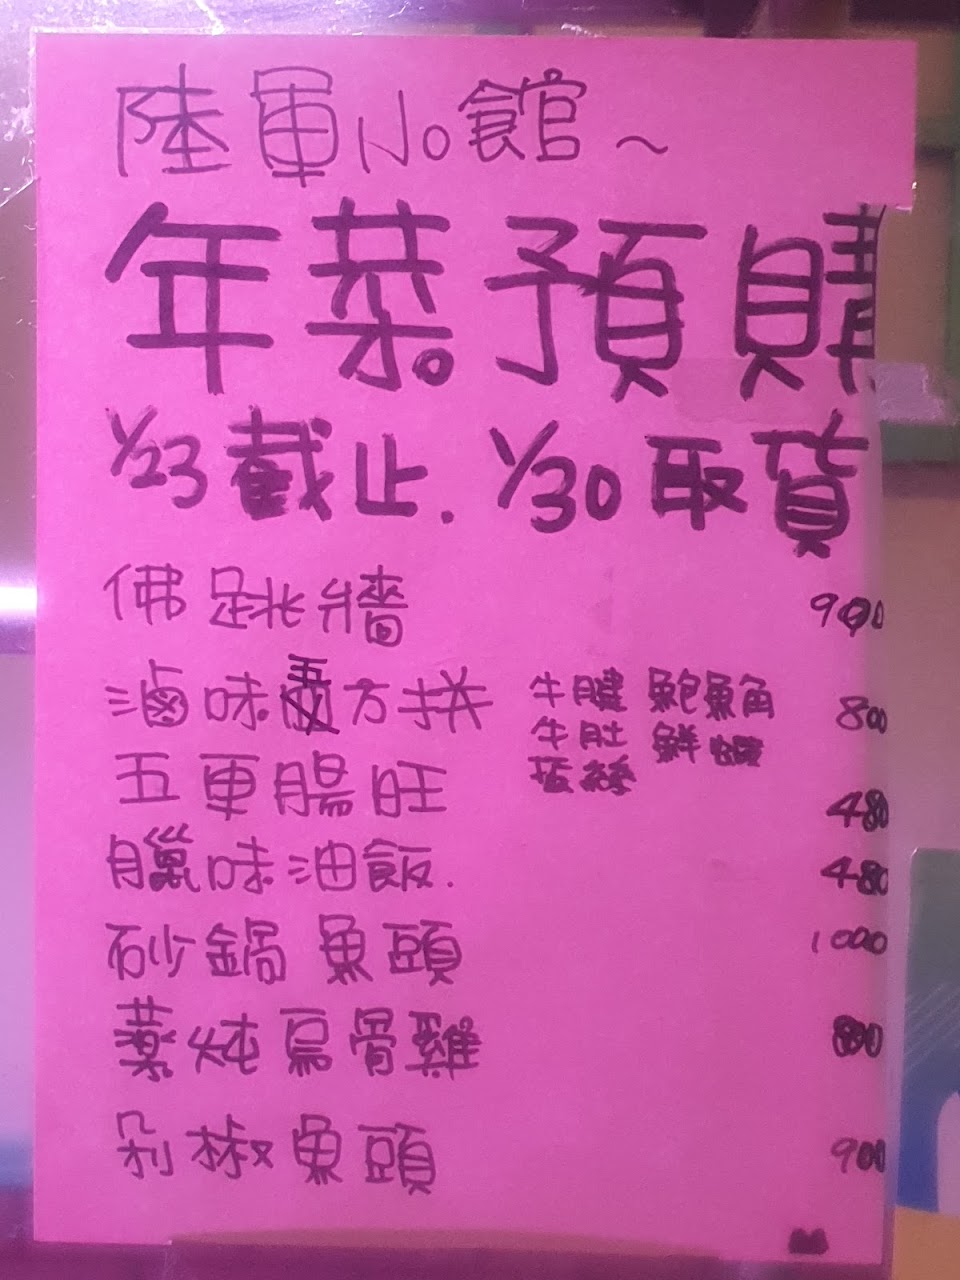 陸軍小館~
年菜預購
1/23截止. 1/30取貨
佛跳牆 900
滷味五方拼 牛腱 鮑魚角 800
牛肚 鮮蝦
五更腸旺 480
臘味油飯. 480
砂鍋魚頭 1000
藥炖烏骨雞 800
剁椒魚頭 900